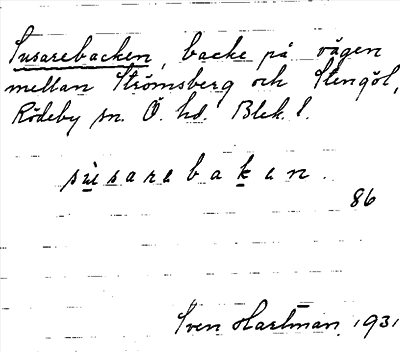 Susarebacken, backe på vägen
mellan Strömsberg och Stengöl,
Rödeby sn. Ö. hd. Blek. l.
sùsarebaken.
86
Sven Hartman 1931